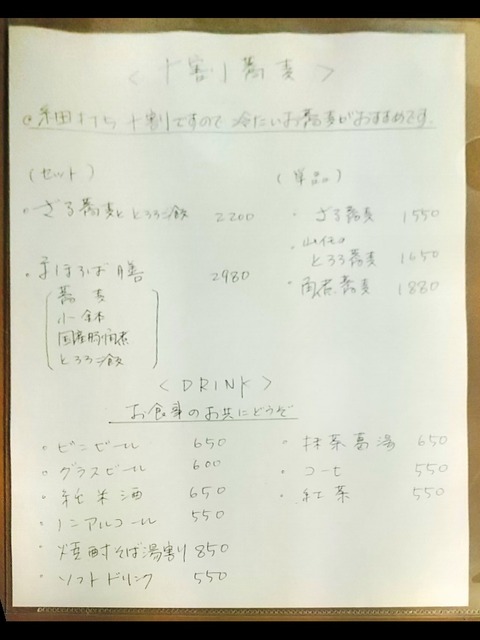 ＜十割蕎麦＞
◎細打ち十割ですので冷たいお蕎麦がおすすめです。
(セット)
・ざる蕎麦ととろろご飯 2200
・まほろば膳 2980
蕎麦
小鉢
国産豚角煮
とろろご飯
(単品)
・ざる蕎麦 1550
・とろろ蕎麦 1650
・角煮蕎麦 1880
＜DRINK＞
お食事のお共にどうぞ
・ビンビール 650
・グラスビール 600
・純米酒 650
・ノンアルコール 550
・焼酎そば湯割り 850
・ソフトドリンク 550
・抹茶葛湯 650
・コーヒー 550
・紅茶 550